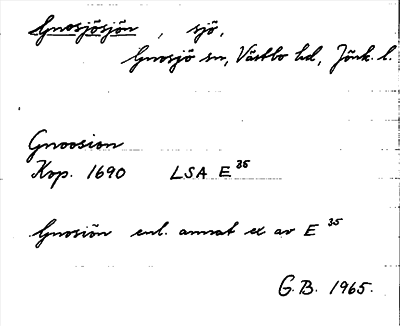 Gnosjösjön, sjö,
Gnosjö sn, Västbo hd, Jönk. l.
Gnoosion
Kop. 1690 LSA E 35
Gnosiön enl. annat ex av E 35
G.B. 1965.